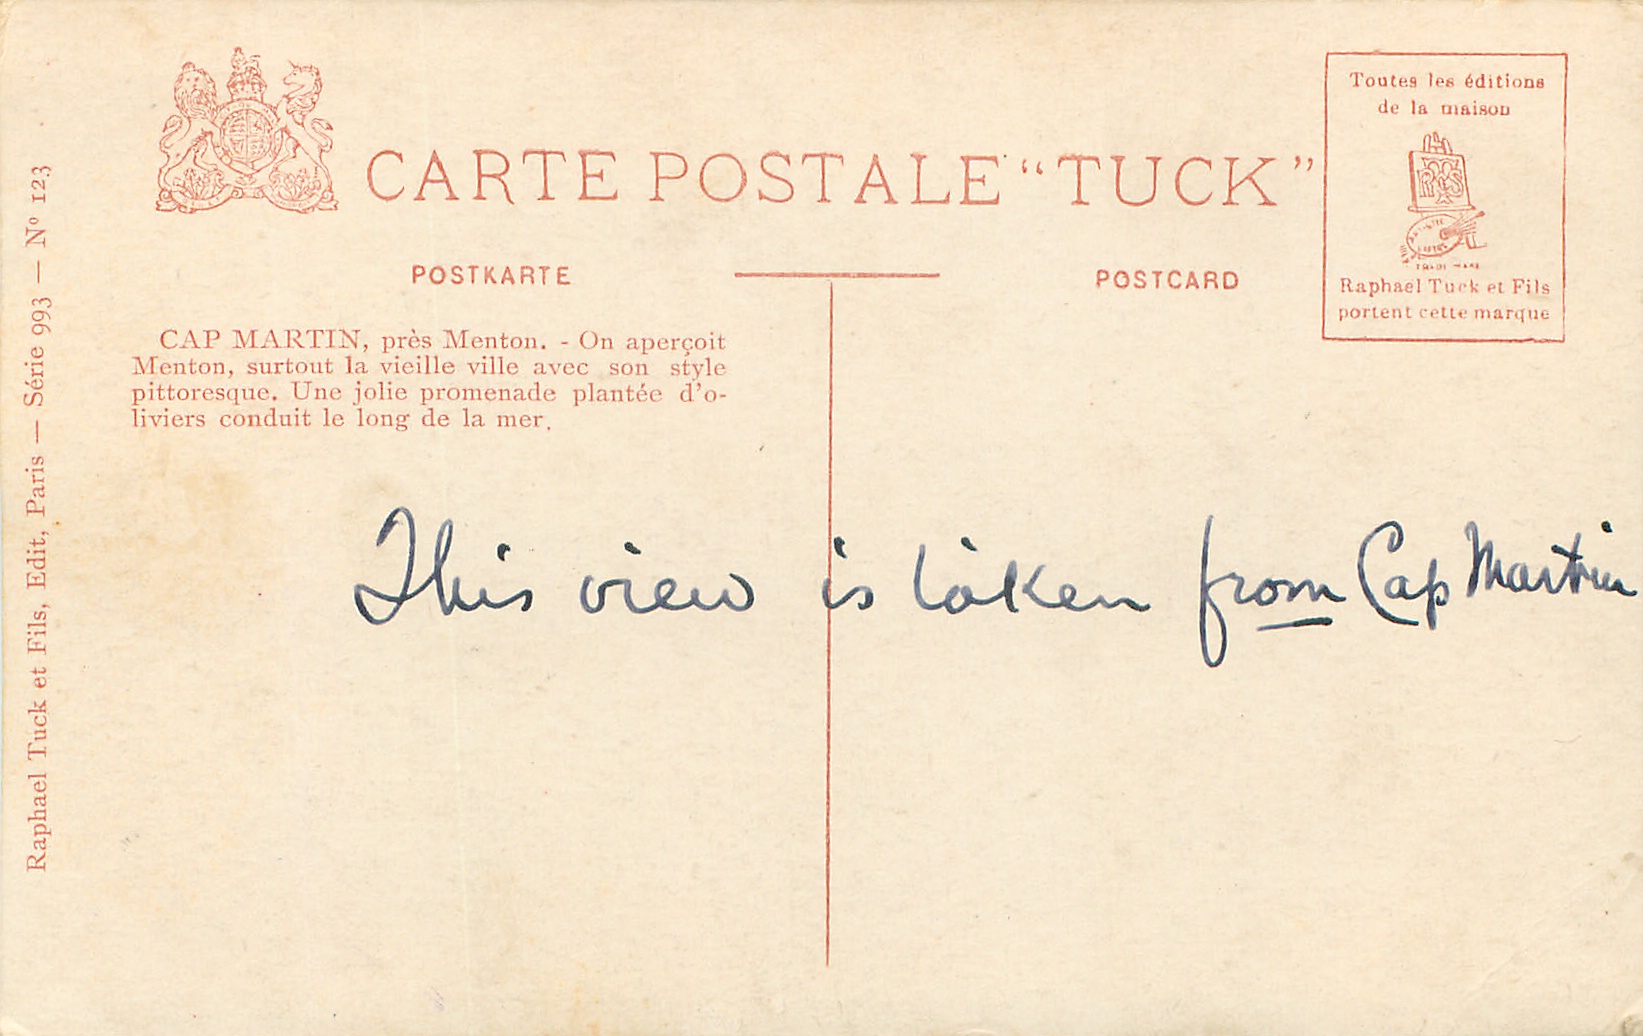 CARTE POSTALE “TUCK”
POSTKARTE
POSTCARD
Toutes les éditions
de la maison
Raphael Tuck et Fils
portent cette marque
CAP MARTIN, près Menton. - On aperçoit
Menton, surtout la vieille ville avec son style
pittoresque. Une jolie promenade plantée d’o-
liviers conduit le long de la mer.
This view is taken from Cap Martin
Raphael Tuck et Fils, Edit, Paris — Série 993 — Nº 123